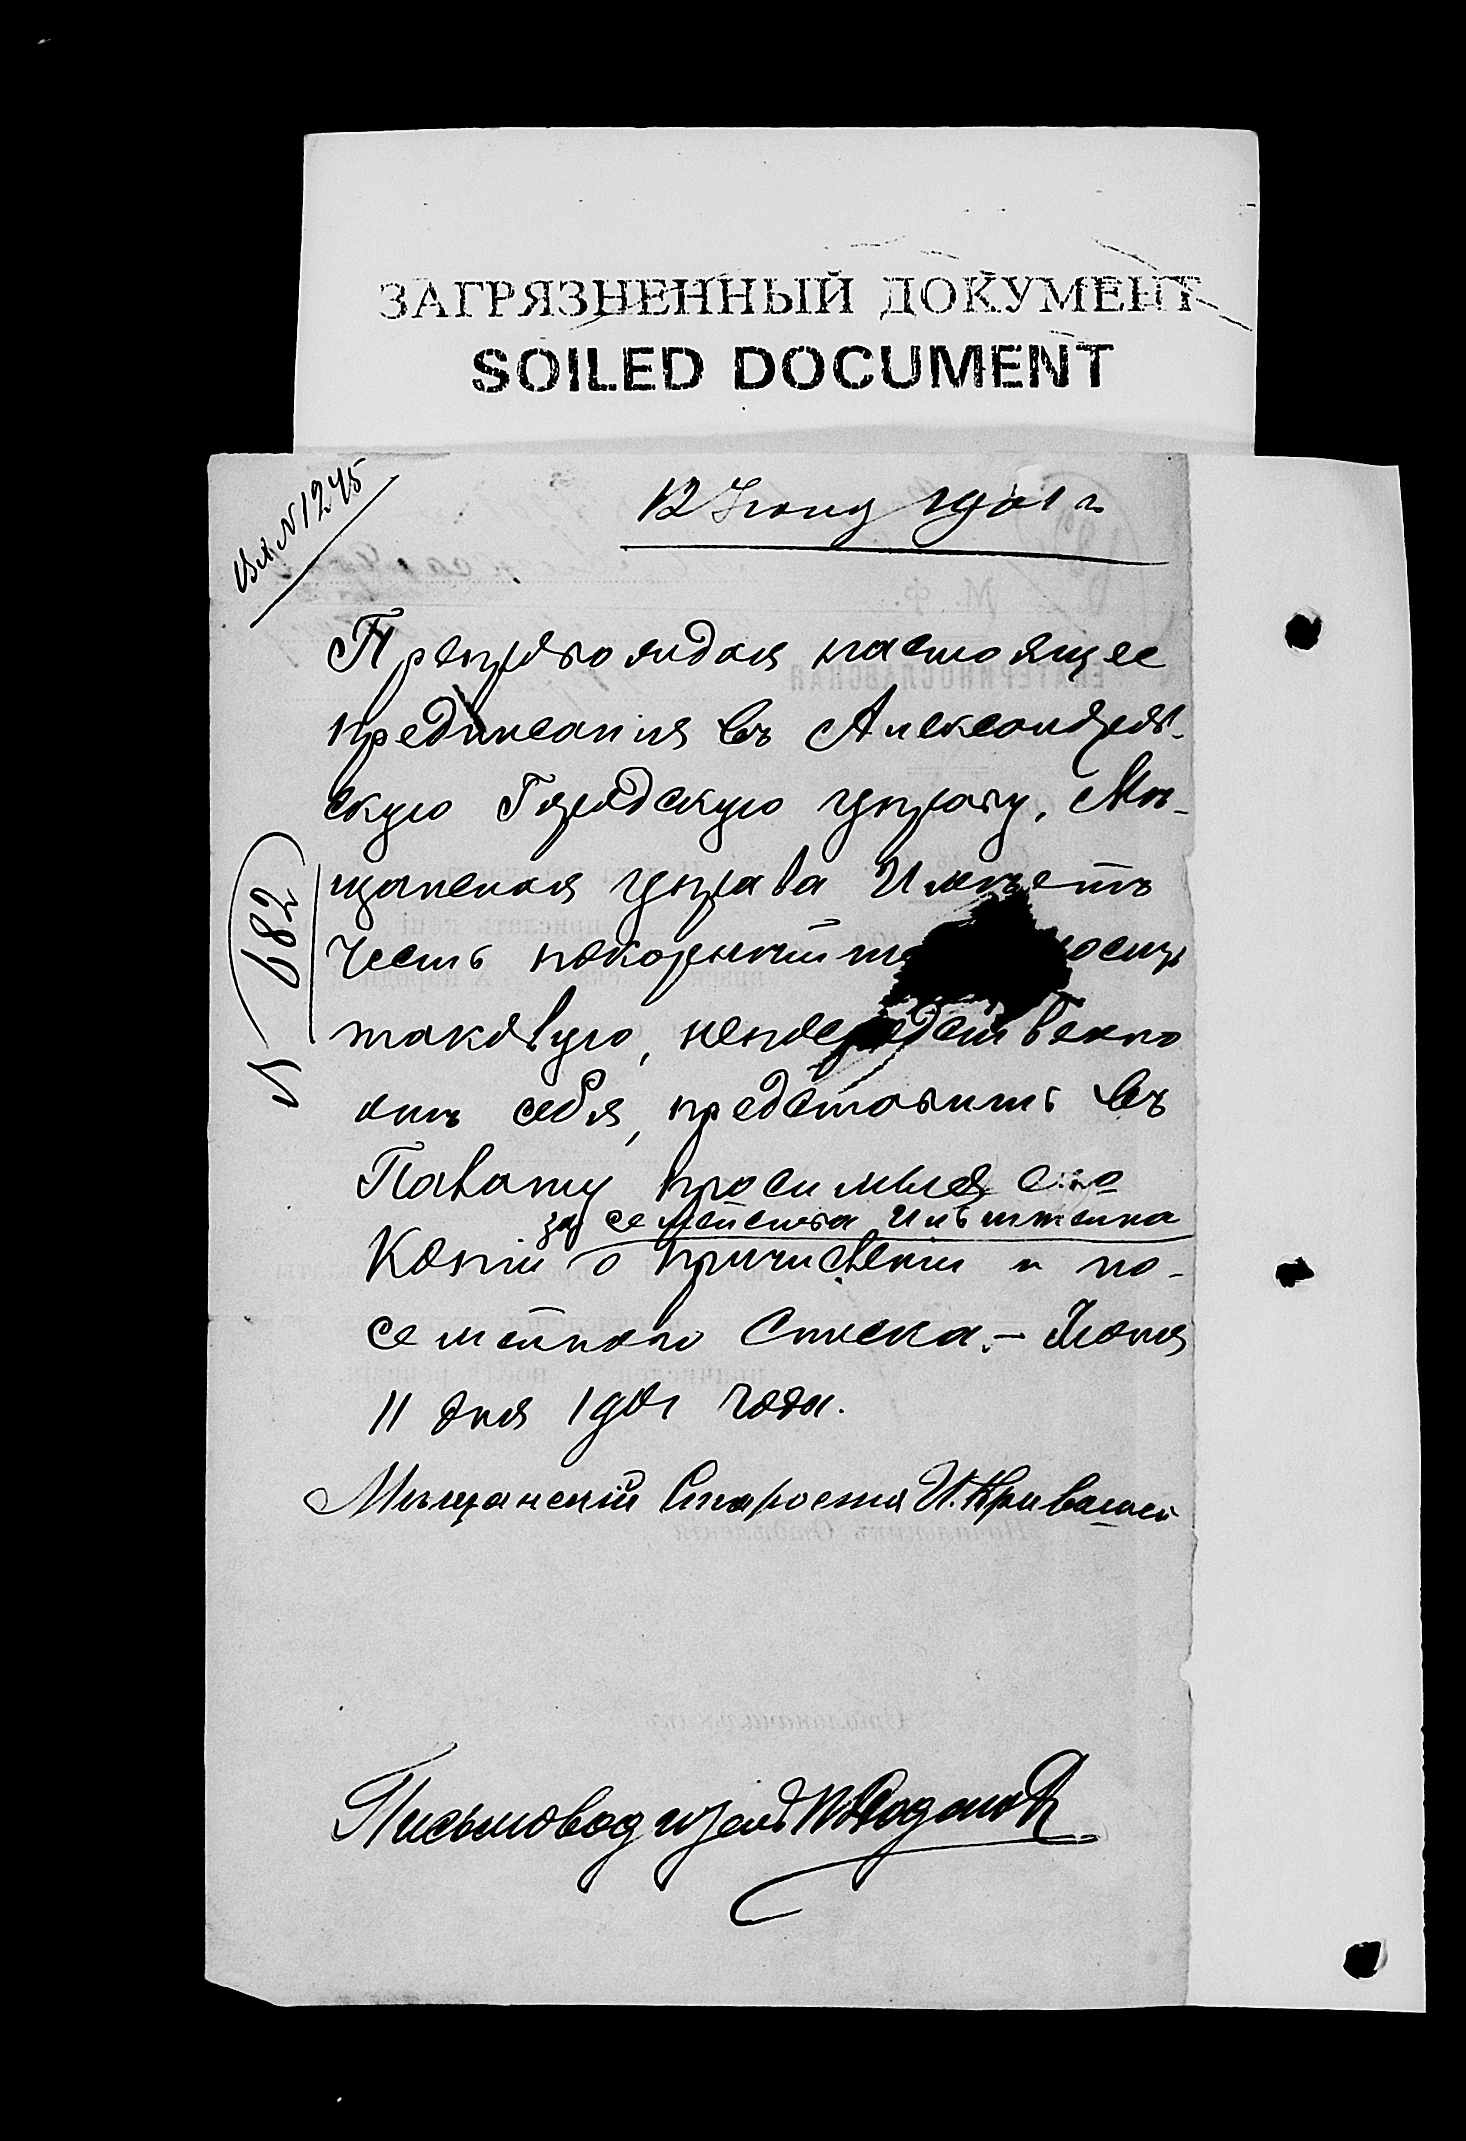 ЗАГРЯЗНЕННЫЙ ДОКУМЕНТ
SOILED DOCUMENT
Вх. № 1245
12 Іюня 1901 г.
Препровождая настоящее
предписанія въ Александров-
скую Городскую управу, Мѣ-
щанская управа Имѣетъ
№ 682
честь покорнѣйше
таковую, непосредственно
отъ себя, представить въ
Палату просимыя
за семейства
Копіи о причисленіи и по-
семейного Списка. – Іюня
11 дня 1901 года.
Мѣщанскій Староста И.
Письмоводитель